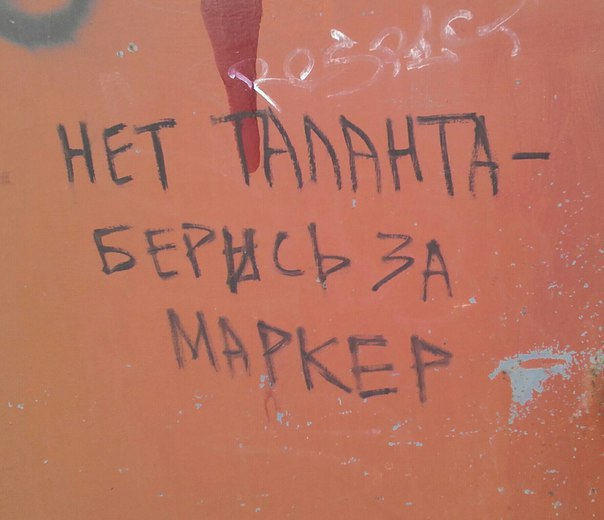 НЕТ ТАЛАНТА -
БЕРИСЬ ЗА
МАРКЕР